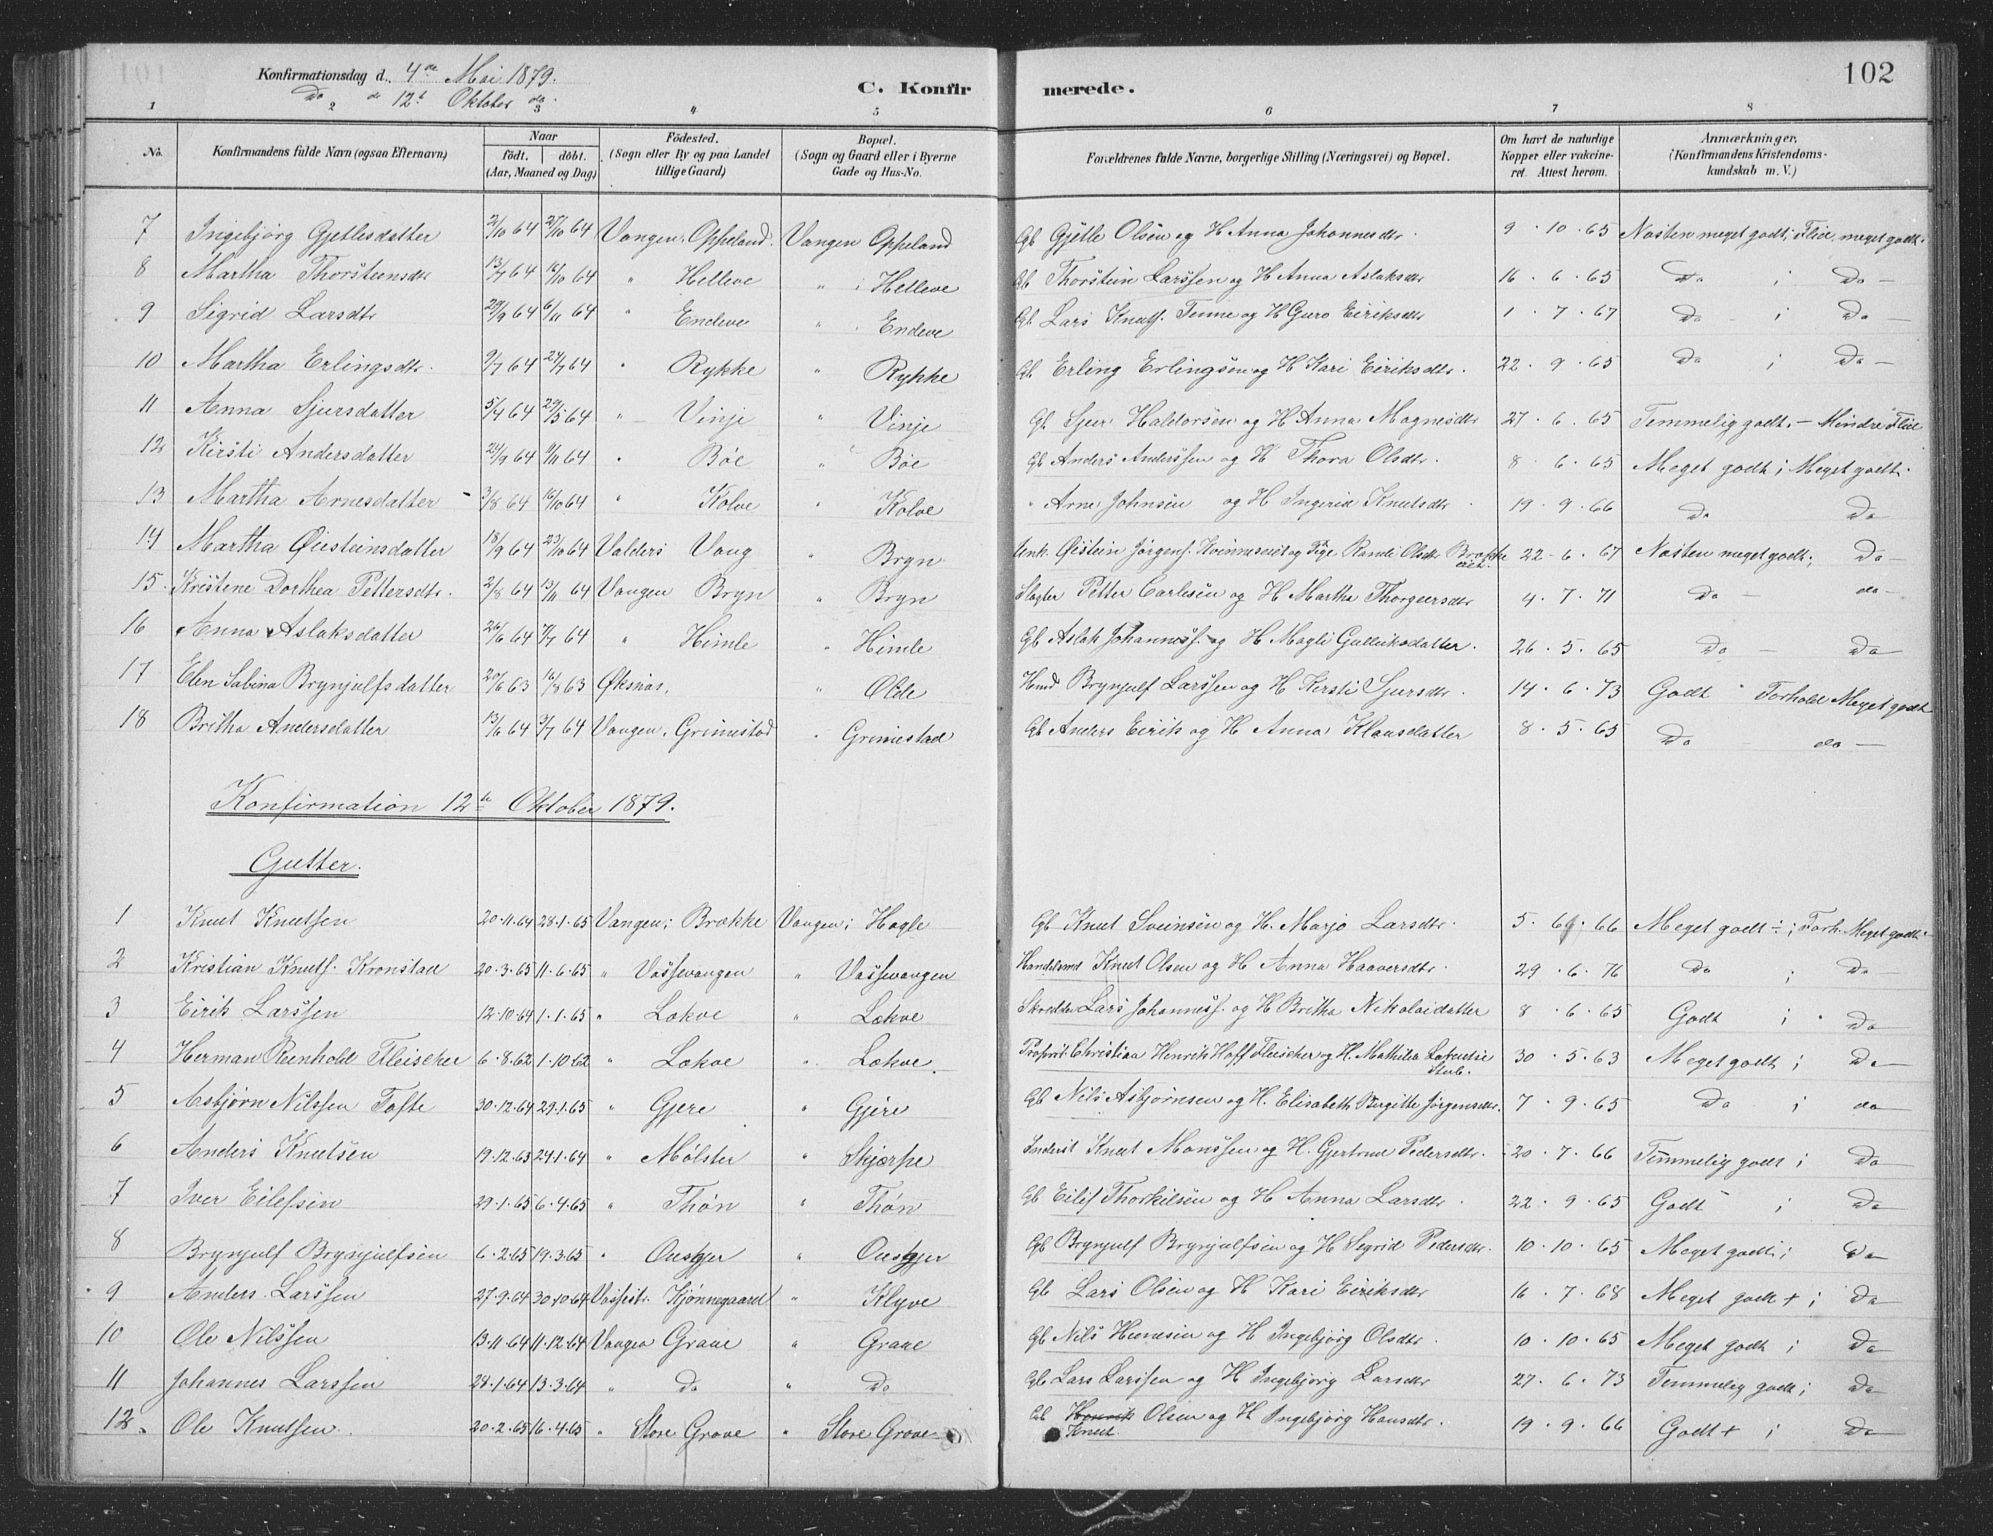 Konfirmationsdag d. 4de Mai 1879.
Do de 12te Oktober do.
C. Konfirmerede.
102
1 2 3 4 5 6 7 8
No. Konfirmandens fulde Navn (ogsaa Efternavn) Naar födt. döbt. (Aar, Maaned og Dag) Födested. (Sogn eller By og paa Landet tillige Gaard) Bopæl. (Sogn og Gaard eller i Byerne Gade og Hus-No. Forældrenes fulde Navne, borgerlige Stilling (Næringsvei) og Bopæl. Om havt de naturlige Kopper eller vakcineret. Attest herom. Anmærkninger. (Konfirmandens Kristendomskundskab m. V.)
7 Ingebjörg Gjetlesdatter 2/10 64 27/10 64 Vangen, Oppeland. Vangen Oppeland Gb Gjetle Olsen og H Anna Johannesdtr. 9 . 10 . 65 Næsten meget godt; Flid, meget godt.
8 Martha Thorsteinsdtr 13/7 64 16/10 64 " Helleve " Helleve Gb Thorstein Larssen og H Anna Aslaksdtr 16 . 6 . 65 Do ; Do -
9 Sigrid Larsdtr 29/9 64 6/11 64 " Endeve " Endeve Gb Lars Knutf. Tenne og H Guro Eiriksdtr 1 . 7 . 67 Do - ; Do -
10 Martha Erlingsdtr. 9/7 64 24/7 64 " Rykke " Rykke Gb Erling Erlingsen og H Kari Eiriksdtr. 22 . 9 . 65 Do ; Do -
11 Anna Sjursdatter 5/4 64 29/5 64 " Vinje " Vinje Gb Sjur Haldorsen og H Anna Magnesdtr 27 . 6 . 65 Temmelig godt. - Mindre Flid
12 Kirsti Andersdatter 29/9 64 9/11 64 " Böe " Böe Gb Anders Anderssen og H Thora Olsdtr. 8 . 6 . 65 Meget godt ; Meget godt.
13 Martha Arnesdatter 3/8 64 16/10 64 " Kolve " Kolve " Arne Johnsen og H Ingerid Knutsdtr 19 . 9 . 66 Do Do
14 Martha Øisteinsdatter 18/9 64 23/10 64 Valders Vang " Bryn Unk. Øistein Jörgenf. Kvinneseid og Pige Randi Olsdtr Brække eid. 22 - 6 . 67 Næsten meget godt; Do -
15 Kristene Dorthea Pettersdtr. 2/8 64 13/11 64 Vangen Bryn " Bryn Slagter Petter Carlesen og H Martha Thorgersdtr 4 . 7 . 71 Do - do -
16 Anna Aslaksdatter 26/6 64 7/7 64 " Himle " Himle Gb Aslak Johannesf. og H Magli Gulliksdatter. 26 . 5 . 65 Do - Do
17 Elen Sabina Brynjulfsdatter 20/6 63 16/8 63 Øksnæs, " Olde Hmd Brynjulf Larssen og H Kirsti Sjursdtr. 14 . 6 . 73 Godt Forhold Meget godt
18 Britha Andersdatter 13/6 64 3/7 64 Vangen, Grimestad " Grimestad Gb Anders Eirik og H Anna Klausdatter 8 . 5 . 65 Do - do -
Konfirmation 12te Oktober 1879.
Gutter.
1 Knut Knutsen 20.11.64 28.1.65 Vangen; Brække Vangen; Hagle Gb Knut Sveinsen og H. Marjo Larsdtr. 5 . 6 . 66 Meget godt ÷ ; Forh. Meget godt
2 Kristian Knutf. Kronstad 20.3.65 11.6.65 " Vossevangen " Vossevangen Handelsmd Knut Olsen og H Anna Haaversdtr. 29 . 6 . 76 Do ; Do -
3 Eirik Larssen 12.10.64 1.1.65 " Lekve " Lekve Skredder Lars Johannesf. og H Britha Nikolaidatter 8 . 6 . 65 Godt ; Do
4 Herman Reinholdt Fleischer 6.8.62 1.10.62 " Lekve " Lekve. Propriet. Christian Henrik Hoff Fleischer og H. Mathilda Stub. 30 . 5 . 63 Meget godt ; Do
5 Asbjørn Nilssen Tofte 30.12.64 29.1.65 " Gjere " Gjere Gb Nils Asbjørnsen og H. Elisabeth Birgitte Jörgensdtr. 7 . 9 . 65 Do ; do
6 Anders Knutsen 19.12.63 24.1.64 " Mölster " Skjerpe Inderst Knut Monssen og H. Gjertrud Pedersdtr. 20 . 7 . 66 Temmelig godt ; Do
7 Iver Eilefsen 29.1.65 6.4.65 " Thön " Thön Gb Eilif Thorkilsen og H Anna Larsdtr. 22 . 9 . 65 Godt ; Do
8 Brynjulf Brynjulfsen 6.2.65 19.3.65 " Gb Brynjulf Brynjulfsen og H Sigrid Pedersdtr. 10 . 10 . 65 Meget godt ; Do
9 Anders Larssen 27.9.64 30.10.64 Vossestr. Kjönnegaard " Klyve Gb Lars Olsen og H Kari Eiriksdtr 16 . 7 . 68 Meget godt + ; Do
10 Ole Nilssen 13.11.64 11.12.64 Vangen Grave " Grave Gb Nils og H Ingebjörg Olsdtr. 10 . 10 . 65 Meget godt ; Do
11 Johannes Larssen 28.1.64 13.3.64 " Do " Do Gb Lars Larssen og H Ingebjörg Larsdtr 27 . 6 . 73 Temmelig godt ; Do
12. Ole Knutssen. 20.2.65 16.4.65 " Store Grove " Store Grove Gb Henrik Knut Olsen og H Ingebjörg Hansdtr. 19 . 9 . 66 Godt + ; Do